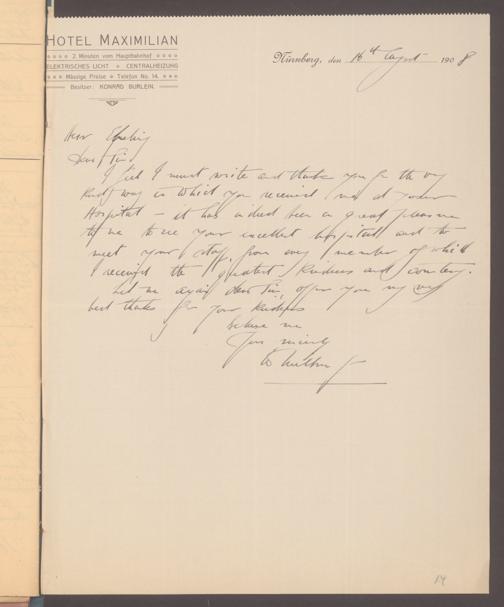 HOTEL MAXIMILIAN
2 Minuten vom Hauptbahnhof
ELEKTRISCHES LICHT * CENTRALHEIZUNG
Mässige Preise * Telefon No. 14.
Besitzer: KONRAD BURLEIN.
Nürnberg, den 16th August 1908
Herr
Dear Sir
I feel I must write and thank you for the very
kind way in which you received me at your
Hospital – it has indeed been a great pleasure
to me to see your excellent hospital and to
meet your staff, from every member of which
I received the greatest kindness and courtesy.
Let me again dear Sir, offer you my very
best thanks for your kindness
believe me
Yours sincerely
14